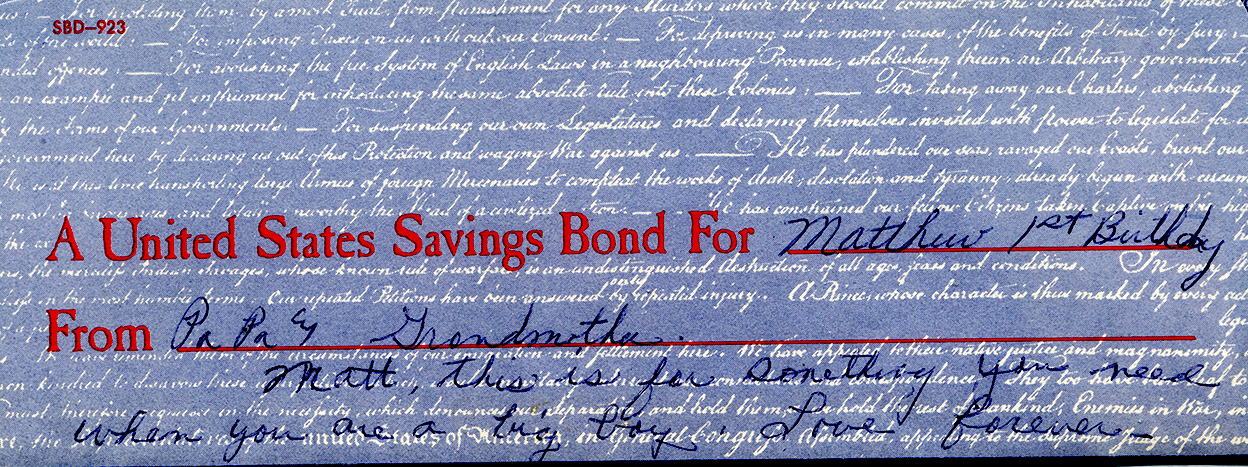 for protecting them, by a mock Trial, from punishment for any Murders which they should commit on the Inhabitants of these
SBD–923
of the world: — For imposing Taxes on us without our Consent: — For depriving us in many cases, of the benefits of Trial by Jury: —
offences: — For abolishing the free System of English Laws in a neighbouring Province, establishing therein an Arbitrary government,
an example and fit instrument for introducing the same absolute rule into these Colonies: — For taking away our Charters, abolishing
the Forms of our Governments: — For suspending our own Legislatures and declaring themselves invested with power to legislate for
Government here by declaring us out of his Protection and waging War against us. — He has plundered our seas, ravaged our Coasts, burnt our
He is at this time transporting large Armies of foreign Mercenaries to compleat the works of death, desolation and tyranny, already begun with
the Head of a civilized — He has constrained our fellow Citizens taken Captive on the high
A United States Savings Bond For Matthew 1st Birthday
the merciless Indian Savages, whose known rule of warfare, is an undistinguished destruction of all ages, sexes and conditions. In every
in the most humble terms: Our repeated Petitions have been answered only by repeated injury. A Prince, whose character is thus marked by every act
From Pa Pa & Grandmother.
of our emigration and settlement here. We have appealed to their native justice and magnanimity,
Matt, this is for something you need
must, therefore, in the necessity, which denounces our Separation, and hold them, hold the rest of mankind, Enemies in War, in
when you are a big boy. Love forever
United States of America, in General Congress, Assembled, appealing to the Supreme Judge of the